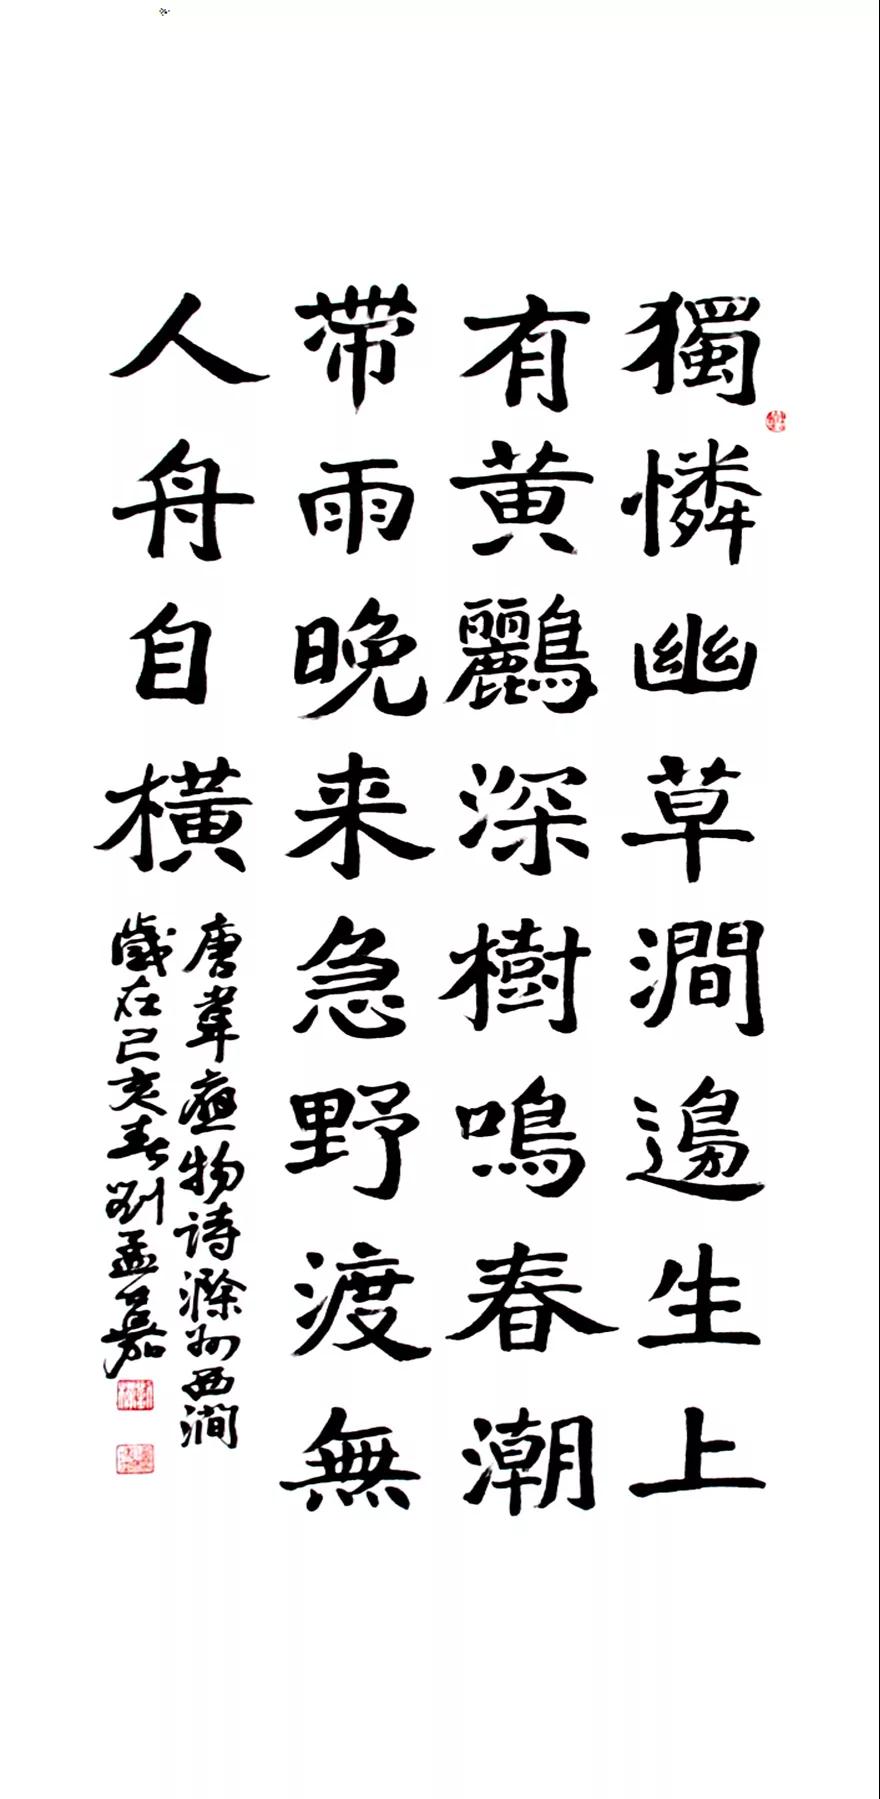 獨憐幽草澗邊生上
有黄鸝深樹鳴春潮
带雨晚来急野渡無
人舟自橫
唐韋應物詩滁州西澗
歲在己亥春劉孟嘉